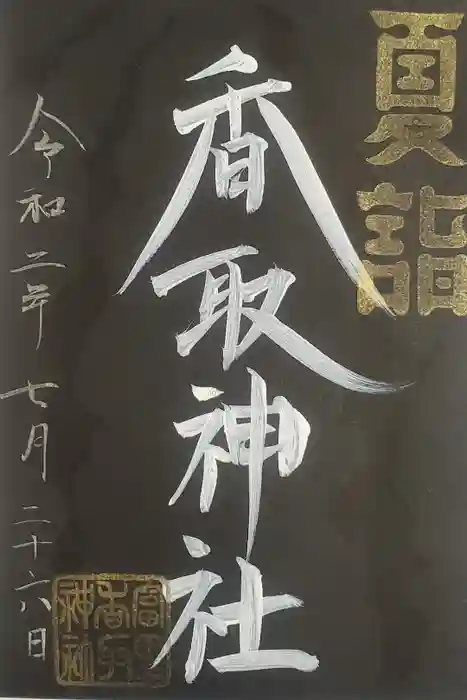 夏詣
香取神社
令和二年七月二十六日